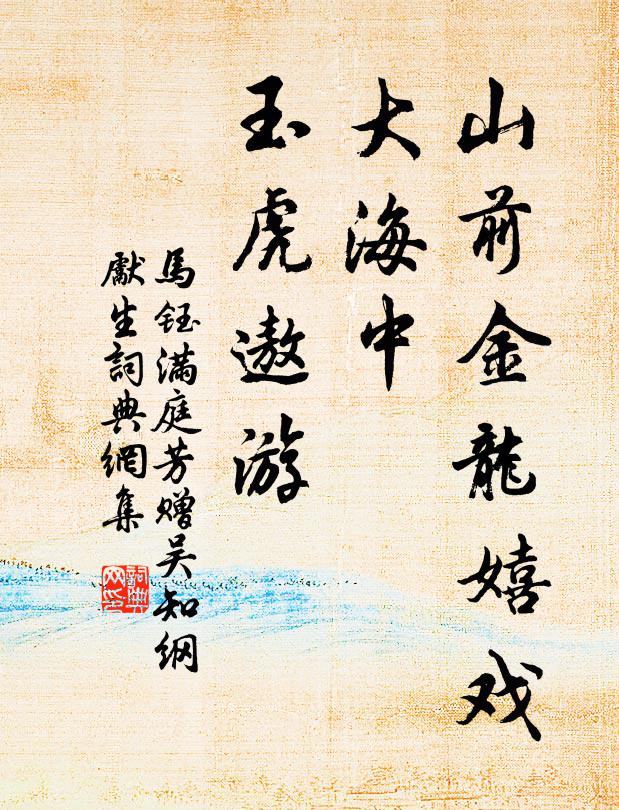 山前金龍嬉戏
大海中
玉虎遨游
馬鈺满庭芳赠吴知纲
獻生詞典網集
詞典
网印